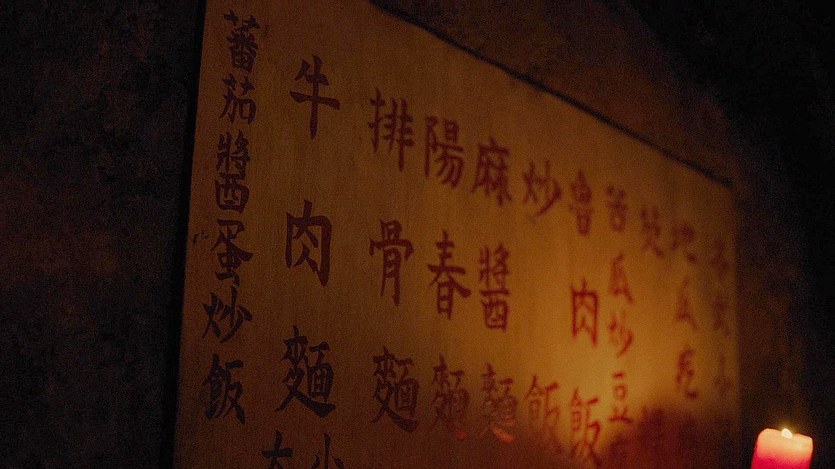 蕃茄醬蛋炒飯
牛肉麵
大 小
排骨麵
陽春麵
麻醬麵
炒飯
魯肉飯
苦瓜炒豆
地瓜